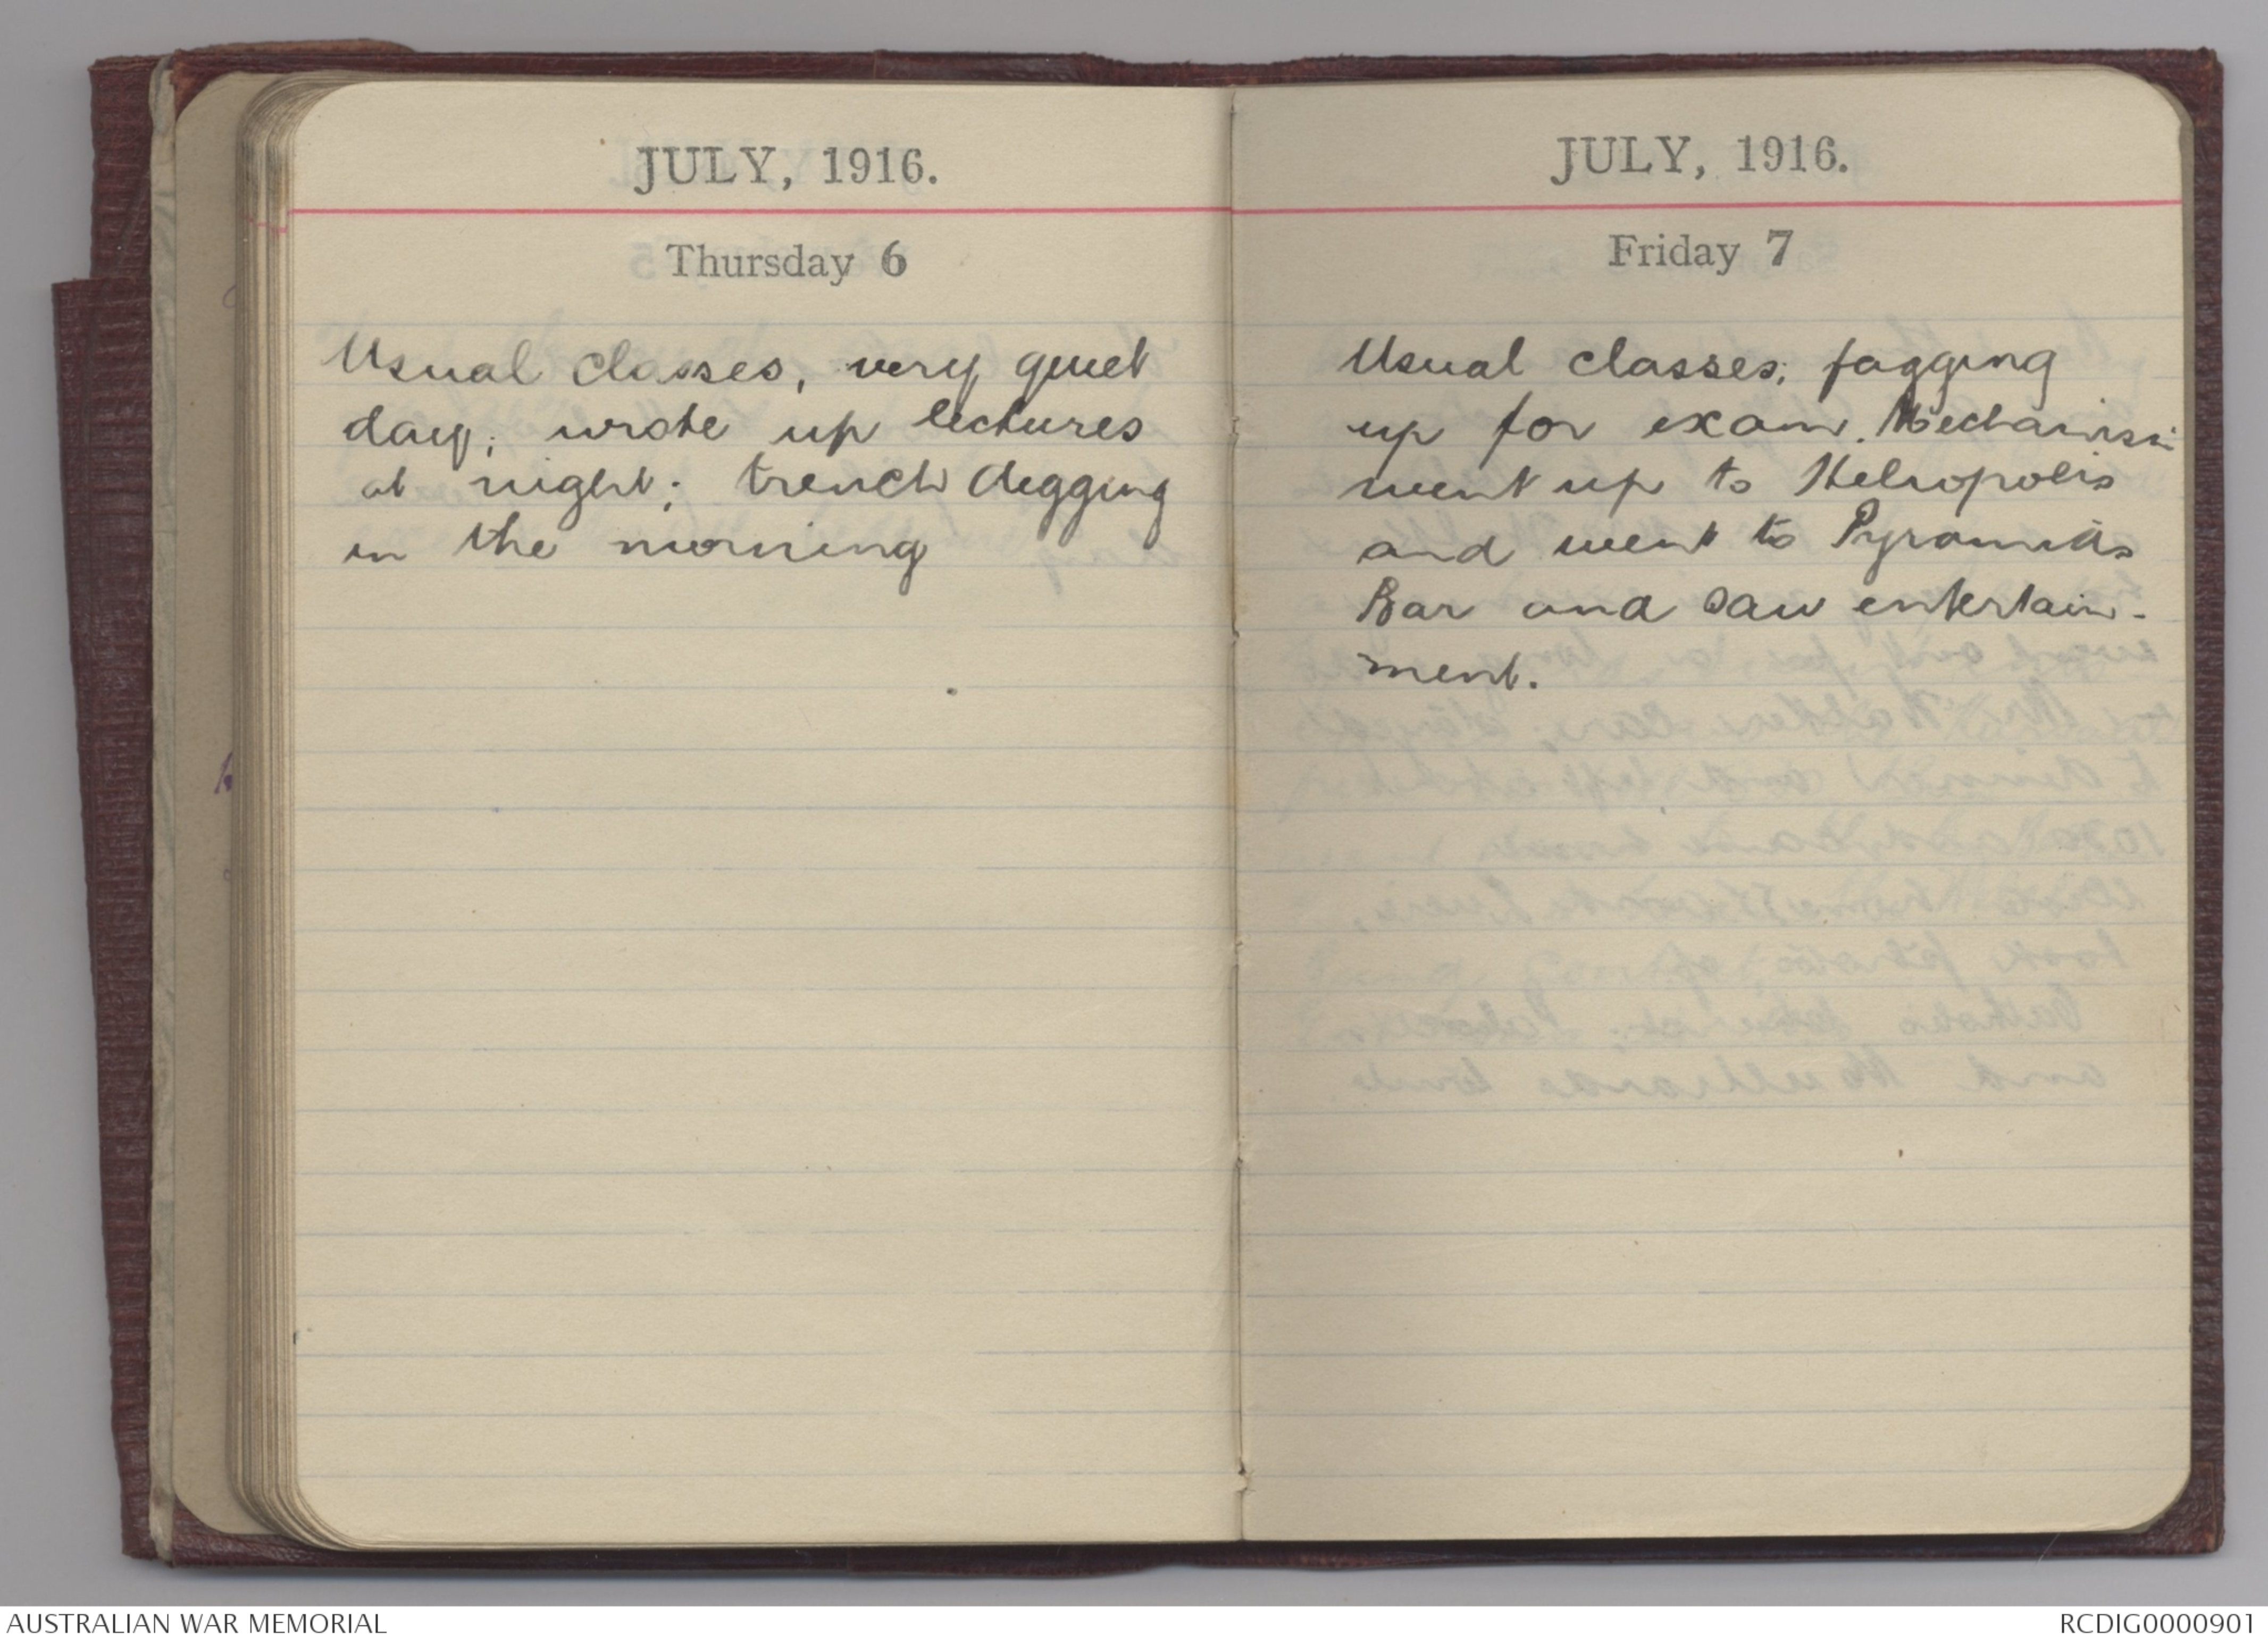 JULY, 1916.
Thursday 6
Usual classes, very quiet
day; wrote up lectures
at night; trench digging
in the morning
JULY, 1916.
Friday 7
Usual classes; fagging
up for exam. Mechanism
went up to Heliopolis
and went to Pyramids
Bar and saw entertain-
ment.
AUSTRALIAN WAR MEMORIAL
RCDIG0000901